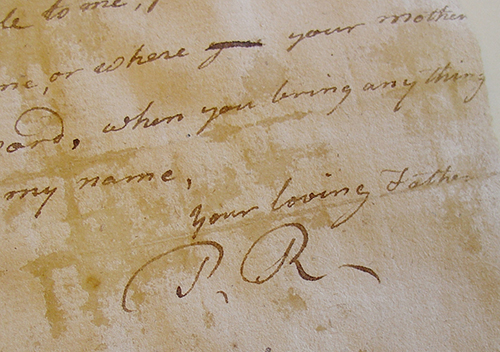 to me,
or where your mother
when you bring anything
my name,
Your loving Father
P. R.